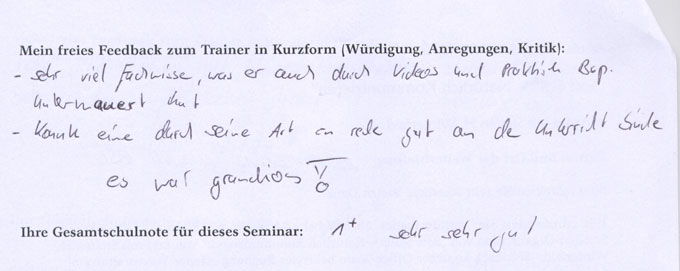 Mein freies Feedback zum Trainer in Kurzform (Würdigung, Anregungen, Kritik):
- sehr viel Fachwisse, was er auch durch Videos und Praktisch Bsp.
untermauert hat
- Konnte eine durch seine Art an rede gut an de Unterricht
es war grandios!
Ihre Gesamtschulnote für dieses Seminar: 1+ sehr sehr gut